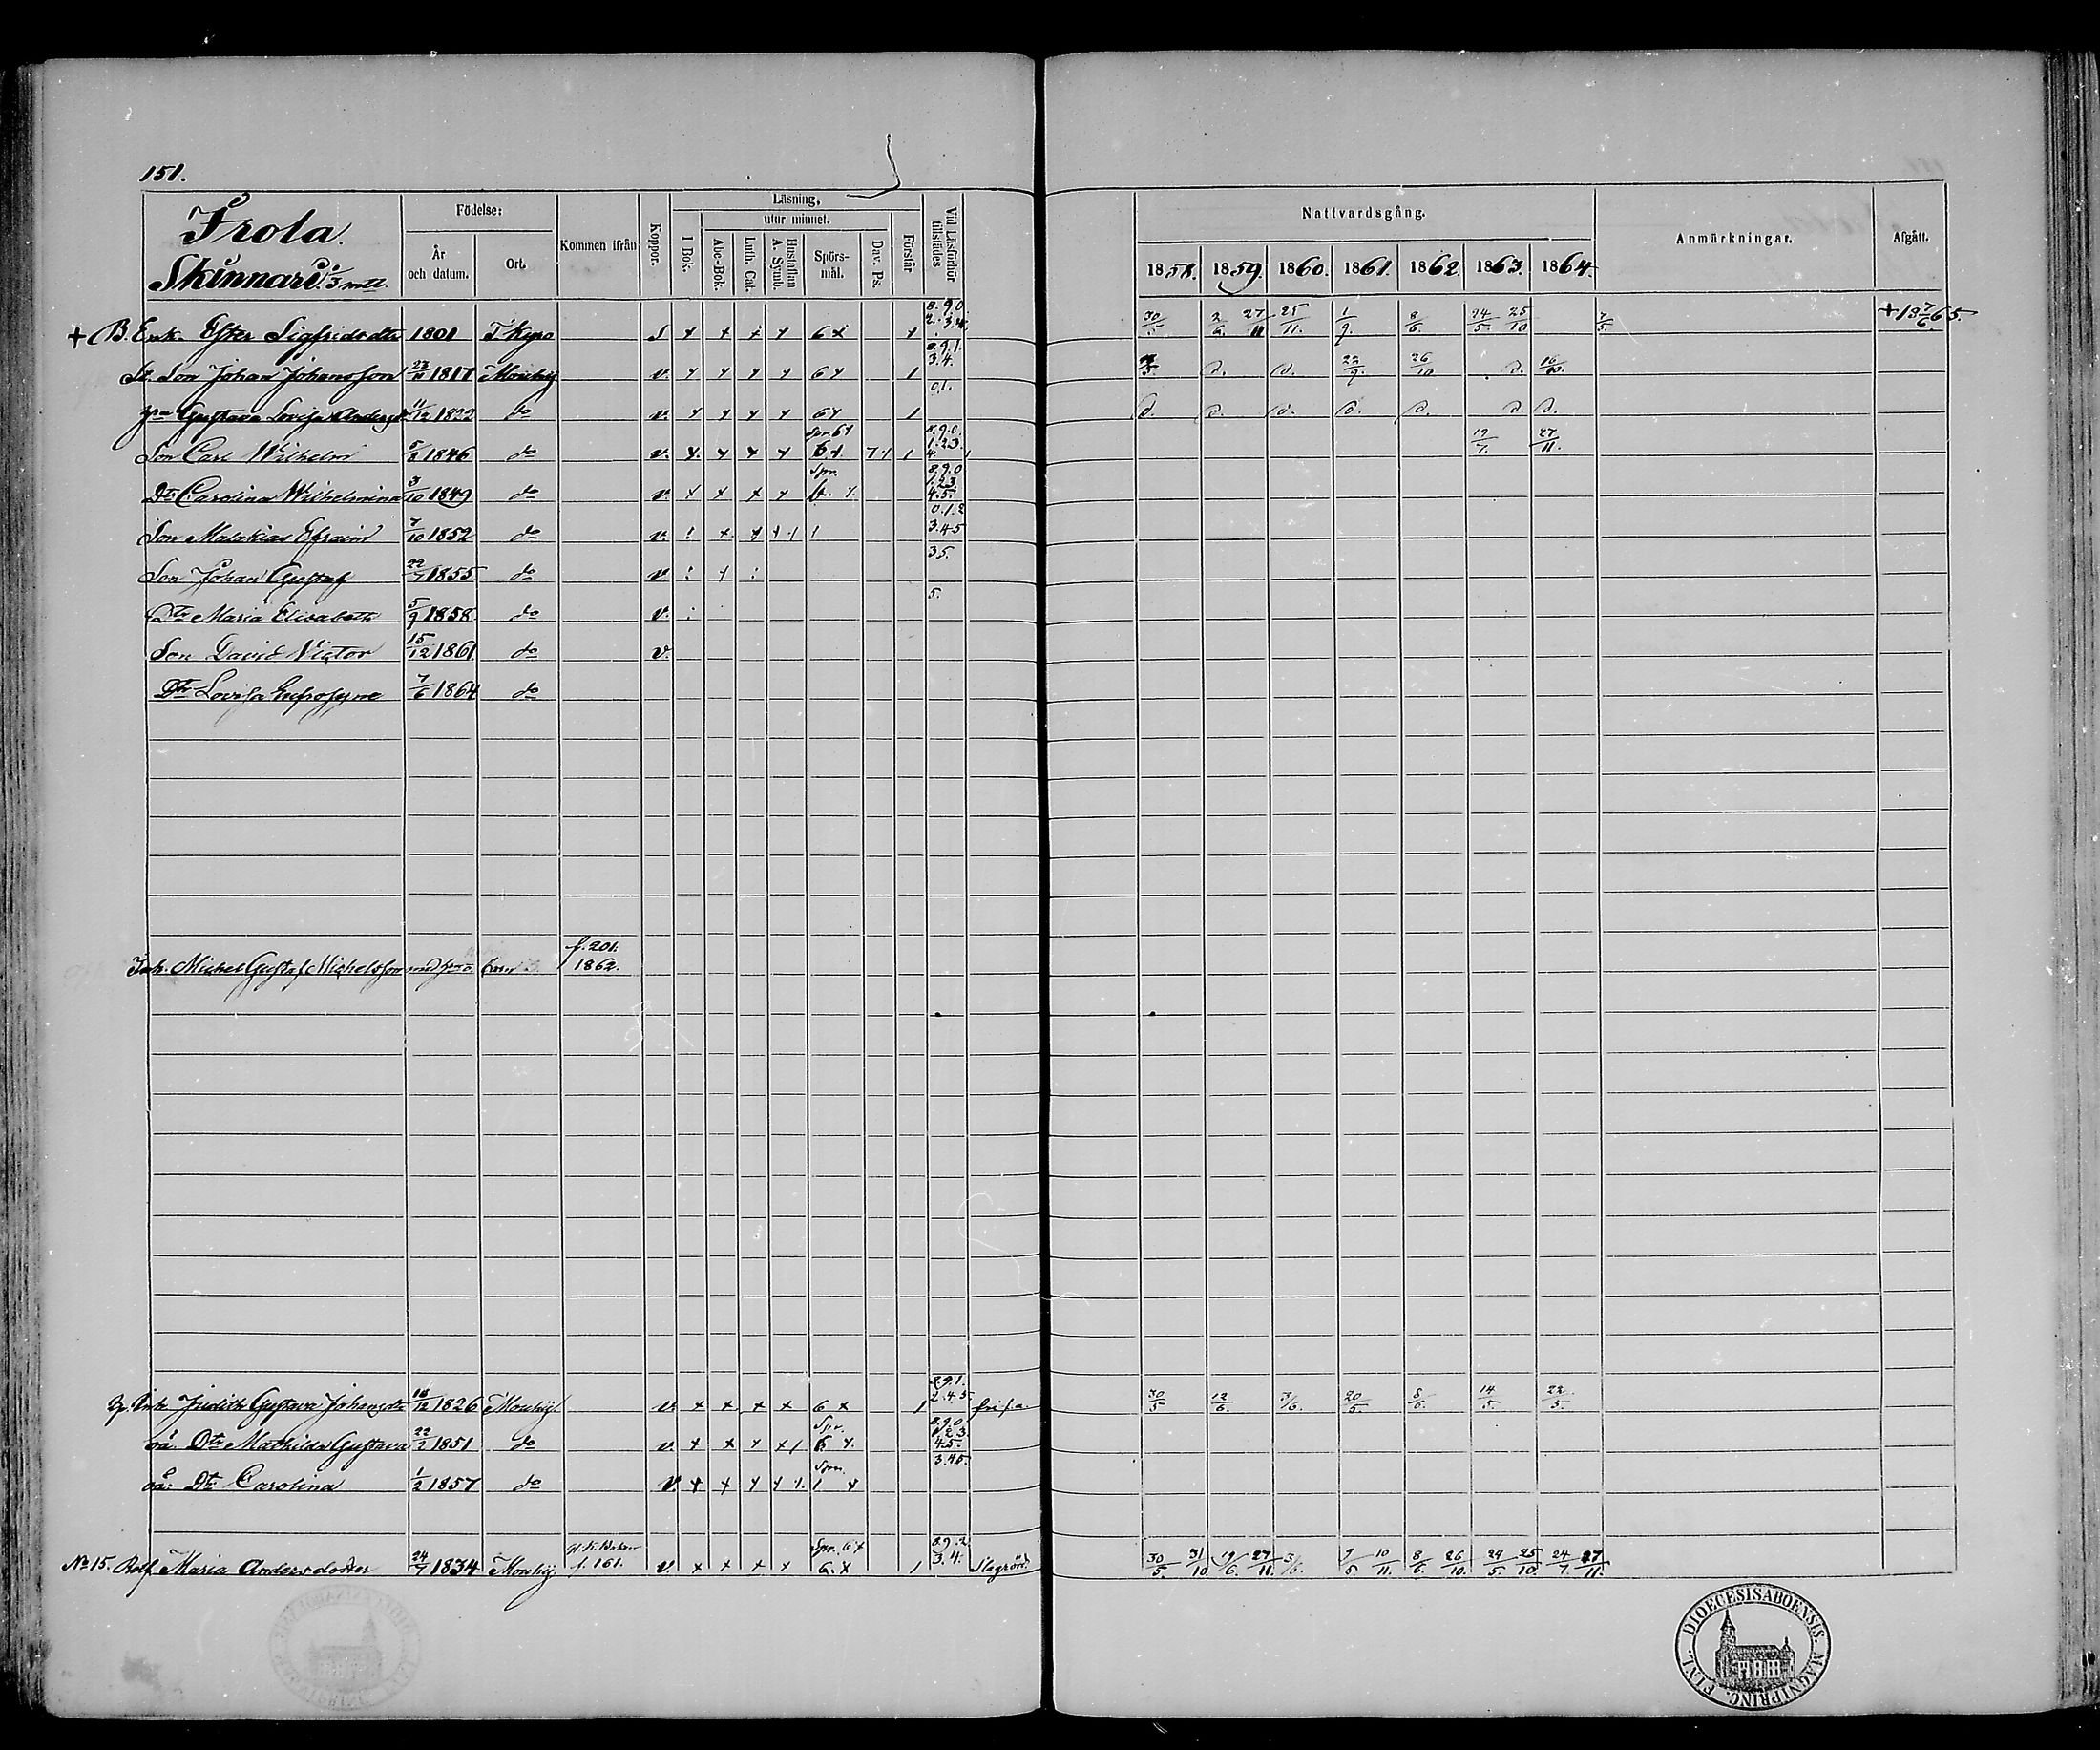 151.
Frola.
Skinnari 1/3 mtl.
Födelse:
År och datum.
Ort.
Kommen ifrån
Koppor.
Läsning,
I Bok.
utur minnet.
Abc-Bok.
Luth. Cat.
Hustaflan A. Symb.
Spörs-mål.
Dav. Ps.
Förstår
Vid Läsförhör tillstädes
Nattvardsgång.
1858. 1859. 1860. 1861. 1862. 1863. 1864.
Anmärkningar.
Afgått.
+ B. Enk. Ester Sigfridsdtr 1801 T. Kyro S + + + + 6 x 1 8.9.0 2.3.4. 30/5 2/6 27/11 25/11. 1/9. 8/6 24/5. 25/10 7/5 + 13 7/6 65.
Son Johan Johansson 1817 Mouhij v. + + + + 6 + 1 8.9.1. 3.4. d. d. 22/9. 26/10 d. 16/10.
Gustava Lovisa Andersdr 11/12 1822 do v. + + + + 6 + 1 0.1. d. d. d. d. d. d. d.
Son Carl Wilhelm 5/2 1846 do v. + + + + Spr. 6 + 7 + 1 8.9.0. 1.2.3. 4. 19/7. 27/11.
Dtr Carolina Wilhelmina 3/10 1849 do v. + + + + Spr. 8.9.0 1.2.3. 4.5.
Son Malakias Efraim 7/10 1852 do v. 0.1.2 3.4.5
Son Johan Gustaf 22/7 1855 do v. 3.5.
Dtr Maria Elisabeth 5/9 1858. do v. 5.
Son David Victor 15/12 1861 do v.
Dtr Lovisa Eufrosyne 7/6 1864 do
Inh. Michel Gustaf Michelsson med barn f. 201. 1862.
Inh. Judith Gustava Johansdtr 1826 Mouhij. v. + + + + 6 x 1 8.9.1. 2.4.5. 30/5 12/6. 3/6. 20/5. 8/6. 14/5 22/5.
oä. Dtr Mathilda Gustava 22/2 1851 do v. + + + Spr. 8.9.0 1.2.3. 4.5.
oä. Dtr Carolina 1/2 1857 do v. + + + Spr. 3.4.5.
No 15. Maria Andersdotter 24/7 1834 Mouhij. f. 161. v. + + + + Spr. 6 x 6. x 1 8.9.2. 3.4. 30/5. 31/10 19/6. 27/11 3/6. 9/5 10/11. 8/6. 26/10. 24/5. 25/10. 24/7. 27/11.
DIOECESIS ABOENSIS. MAGNI PRINC. FINL.